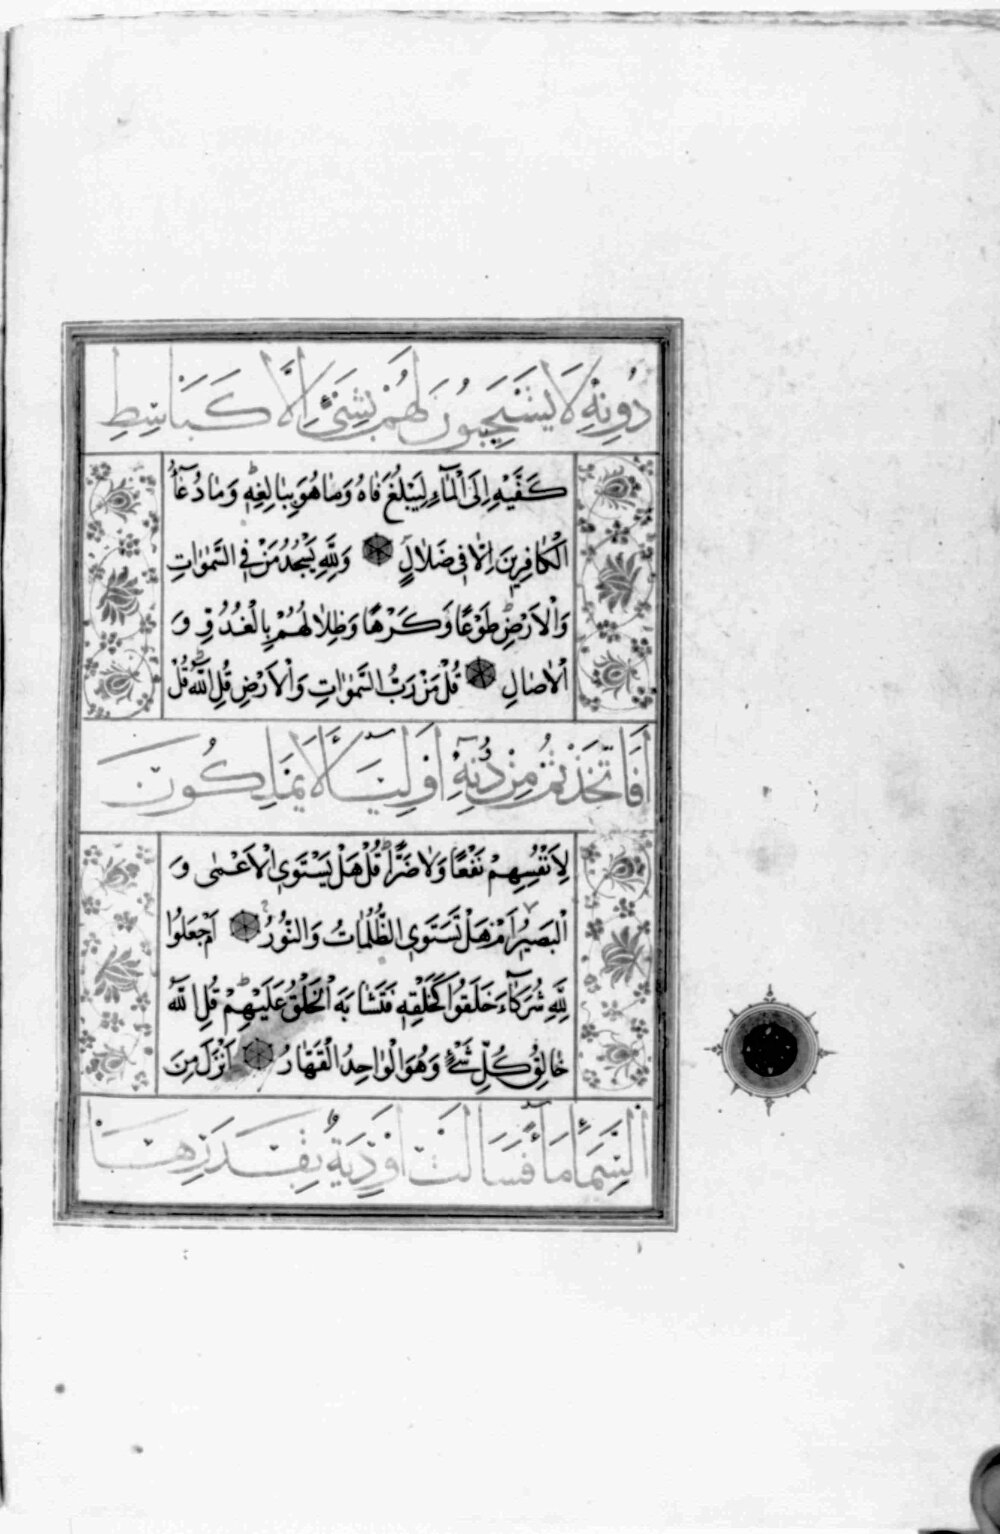 دُونِهِ لَا يَسْتَجِيبُونَ لَهُمْ بِشَيْءٍ اِلَّا كَبَاسِطِ
كَفَّيْهِ اِلَى الْمَآءِ لِيَبْلُغَ فَاهُ وَمَا هُوَ بِبَالِغِهٖ وَمَا دُعَآءُ
الْكَافِرِينَ اِلَّا فِى ضَلَالٍ وَلِلّٰهِ يَسْجُدُ مَنْ فِى السَّمٰوَاتِ
وَالْاَرْضِ طَوْعًا وَكَرْهًا وَظِلَالُهُمْ بِالْغُدُوِّ وَ
الْاٰصَالِ قُلْ مَنْ رَبُّ السَّمٰوَاتِ وَالْاَرْضِ قُلِ اللّٰهُ قُلْ
اَفَاتَّخَذْتُمْ مِنْ دُنِهٖ اَوْلِيَآءَ لَا يَمْلِكُونَ
لِاَنْفُسِهِمْ نَفْعًا وَلَا ضَرًّا قُلْ هَلْ يَسْتَوِى الْاَعْمٰى وَ
الْبَصِيرُ اَمْ هَلْ تَسْتَوِى الظُّلُمَاتُ وَالنُّورُ اَمْ جَعَلُوا
لِلّٰهِ شُرَكَآءَ خَلَقُوا كَخَلْقِهٖ فَتَشَابَهَ الْخَلْقُ عَلَيْهِمْ قُلِ اللّٰهُ
خَالِقُ كُلِّ شَىْءٍ وَهُوَ الْوَاحِدُ الْقَهَّارُ اَنْزَلَ مِنَ
السَّمَآءِ مَآءً فَسَالَتْ اَوْدِيَةٌ بِقَدَرِهَا